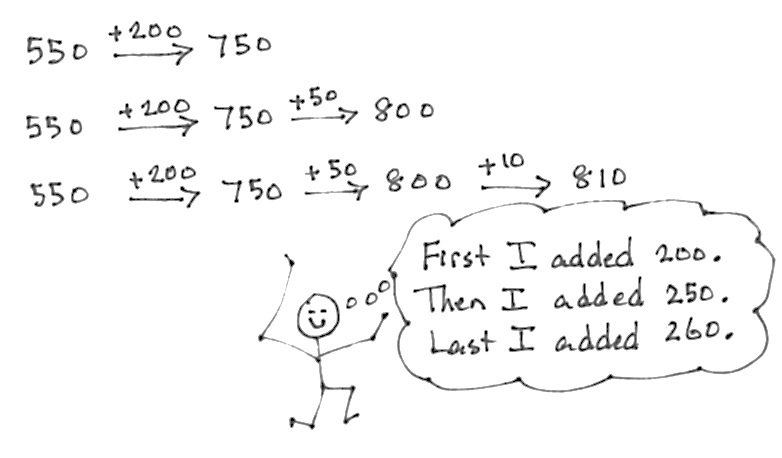 550 +200 → 750
550 +200 → 750 +50 → 800
550 +200 → 750 +50 → 800 +10 → 810
First I added 200.
Then I added 250.
Last I added 260.